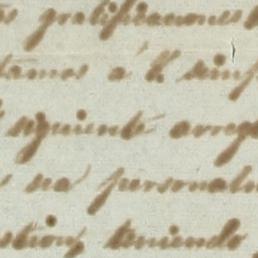 s gratificaciones
tamos a
siguiente arreg
su personalm
stion teniendo